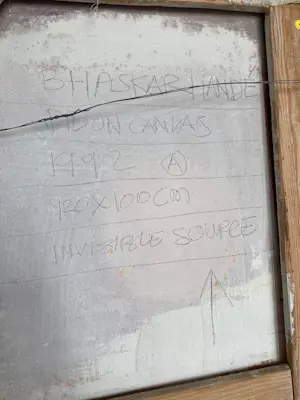 BHASKAR HANDE
OIL ON CANVAS
1992 Ⓐ
120X100CM
INVISIBLE SOURCE